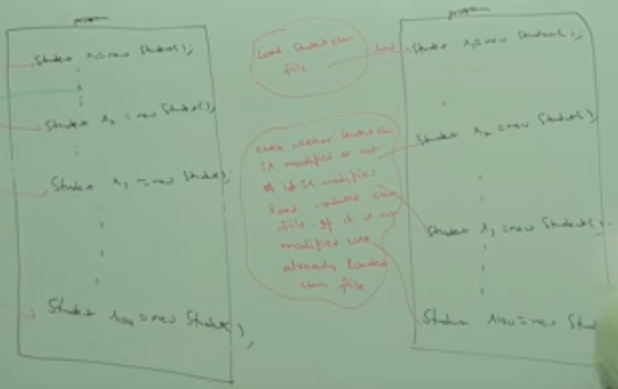 program
Student s1 = new Student();
Student s2 = new Student();
Student s3 = new Student();
Student s100 = new Student();
Load Student.class
file
load
check whether Student.class
is modified or not
if it is modified
load updated class
file if it is not
modified use
already loaded
class file
program
Student s1 = new Student();
Student s2 = new Student();
Student s3 = new Student();
Student s100 = new Stud